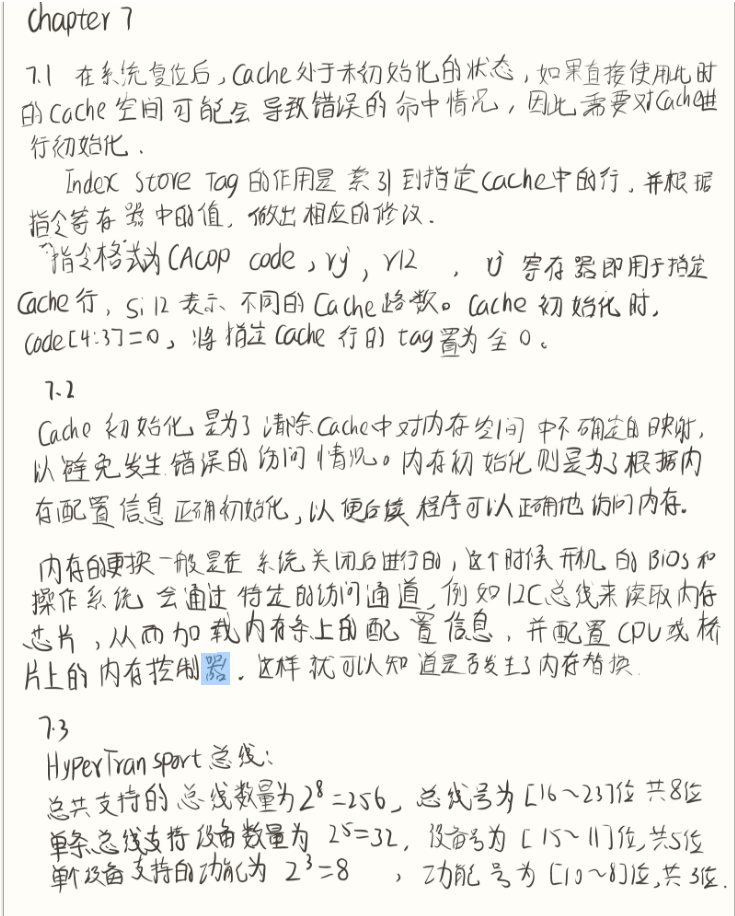 Chapter 7
7.1 在系统复位后，Cache处于未初始化的状态，如果直接使用此时
的Cache 空间可能会导致错误的命中情况，因此需要对Cache进
行初始化.
Index Store Tag的作用是索引到指定Cache中的行，并根据
指令寄存器中的值，做出相应的修改.
指令格式为CACOP code，rj，r12 ，rj 寄存器即用于指定
Cache行，si12表示不同的Cache路数。Cache初始化时，
code[4:3]=0，将指定Cache行的tag置为全0。
7.2
Cache 初始化是为了清除Cache中对内存空间中不确定的映射，
以避免发生错误的访问情况。内存初始化则是为了根据内
存配置信息正确初始化，以便后续程序可以正确地访问内存.
内存的更换一般是在系统关闭后进行的，这个时候开机的BIOS和
操作系统会通过特定的访问通道，例如I2C总线来读取内存
芯片，从而加载内存条上的配置信息，并配置CPU或桥
片上的内存控制器．这样就可以知道是否发生了内存替换.
7.3
HyperTransport总线：
总共支持的总线数量为2⁸=256，总线号为[16~23]位 共8位
单条总线支持设备数量为 2⁵=32，设备号为[15~11]位,共5位
单个设备支持的功能为 2³=8 ，功能号为[10~8]位,共3位.